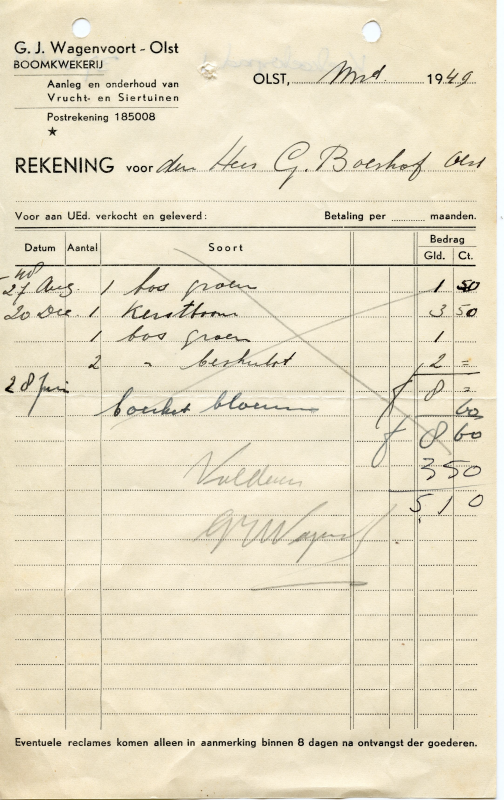 G. J. Wagenvoort - Olst
BOOMKWEKERIJ
Aanleg en onderhoud van
Vrucht- en Siertuinen
Postrekening 185008
OLST, 1949
REKENING voor den Heer G. Boerhof Olst
Voor aan UEd. verkocht en geleverd: Betaling per ........ maanden.
Datum Aantal Soort Bedrag
Gld. Ct.
48
27 Aug. 1 bos groen 1 50
20 Dec 1 Kerstboom 3 50
1 bos groen 1
2 " 2 =
f 8 =
28 Juni boeket bloemen 60
f 8 60
3 50
5 1 0
Voldaan
GJ Wagenv
Eventuele reclames komen alleen in aanmerking binnen 8 dagen na ontvangst der goederen.